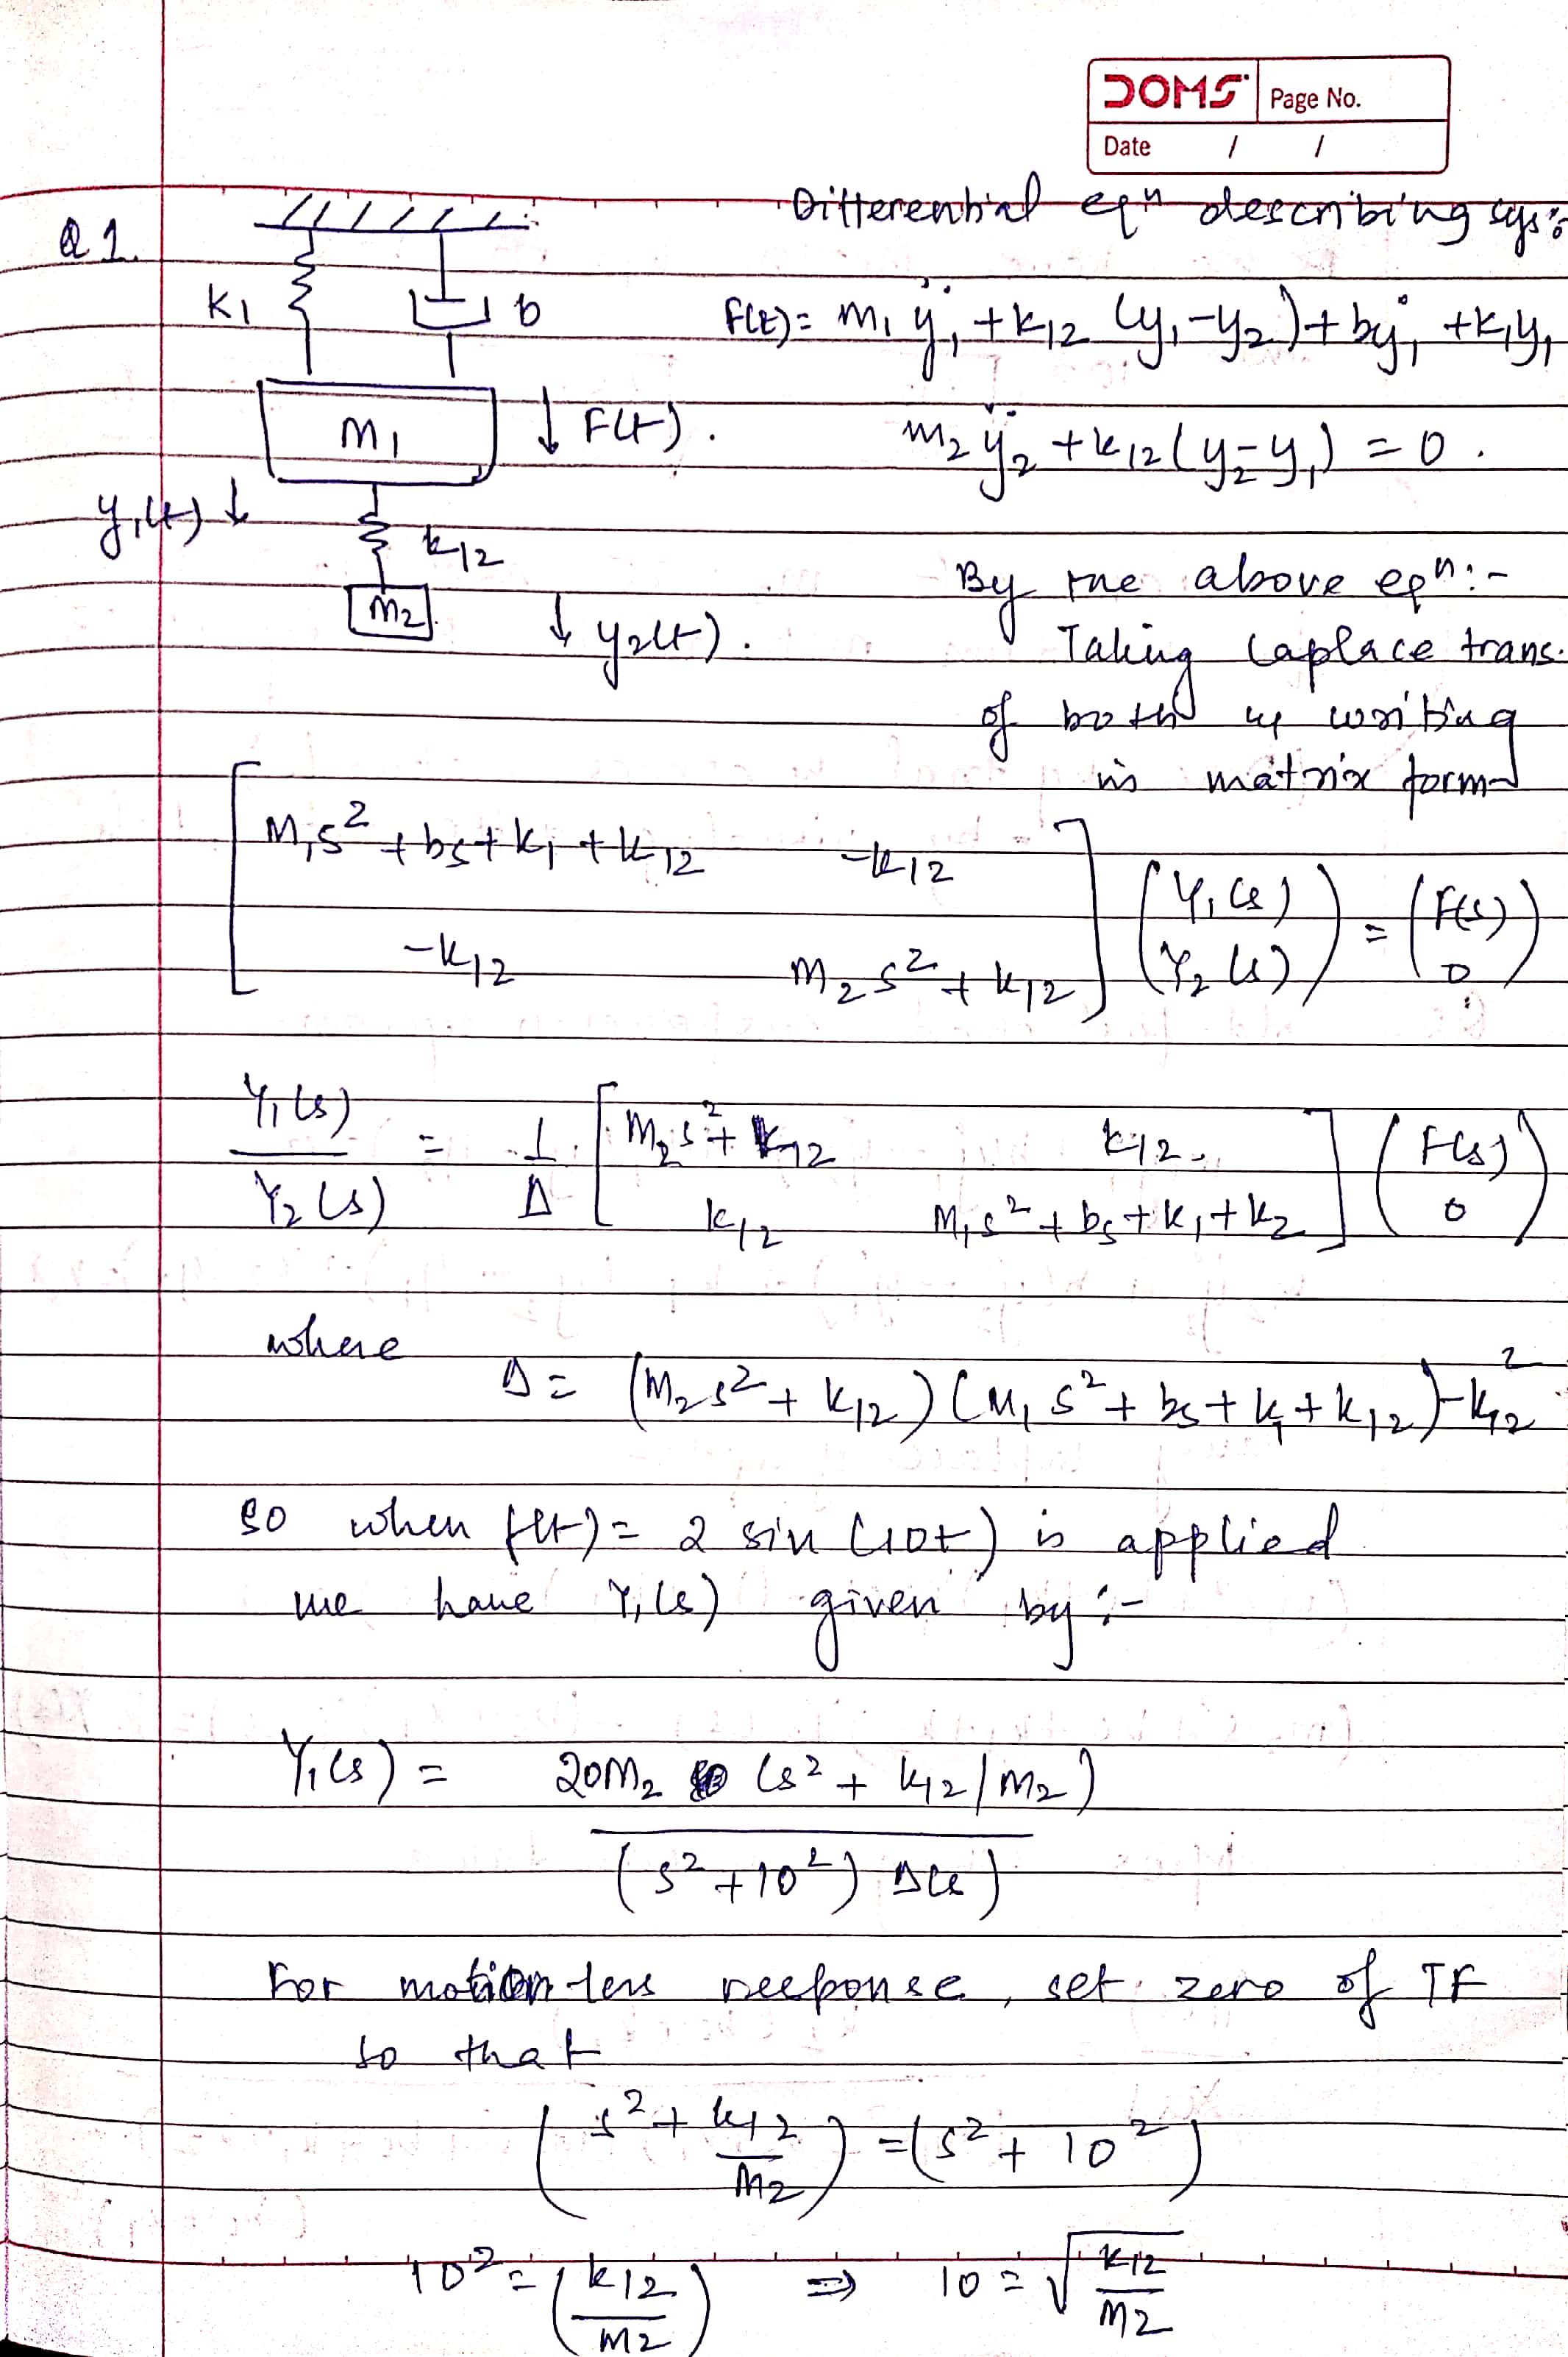 DOMS Page No.
Date / /
Differential eqⁿ describing sys:
Q1.
K₁ b
F(t) = m₁ÿ₁ + k₁₂ (y₁-y₂) + bẏ₁ + k₁y₁
M₁ ↓ F(t).
m₂ÿ₂ + k₁₂(y₂-y₁) = 0.
y₁(t) ↓
k₁₂
M₂
↓ y₂(t).
By the above eqⁿ:-
Taking Laplace trans.
of both & writing
in matrix form
[ M₁s² + bs + k₁ + k₁₂ -k₁₂ ] ( Y₁(s) ) = ( F(s) )
[ -k₁₂ M₂s² + k₁₂ ] ( Y₂(s) ) ( 0 )
Y₁(s) / Y₂(s) = 1/Δ [ M₂s² + k₁₂ k₁₂ ] ( F(s) )
[ k₁₂ M₁s² + bs + k₁ + k₂ ] ( 0 )
where
Δ = (M₂s² + k₁₂) (M₁s² + bs + k₁ + k₁₂) - k₁₂²
so when f(t) = 2 sin (10t) is applied
we have Y₁(s) given by :-
Y₁(s) = 20M₂ (s² + k₁₂/M₂)
(s² + 10²) Δ(s)
For motion less response, set zero of TF
so that
(s² + k₁₂/M₂) = (s² + 10²)
10² = (k₁₂/M₂) ⇒ 10 = √(k₁₂/M₂)